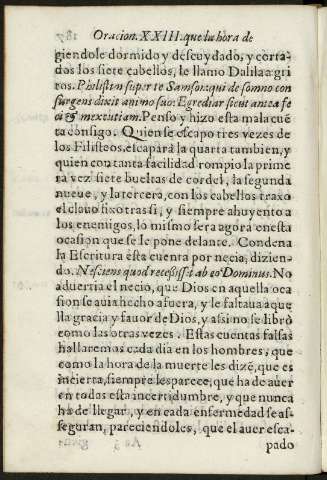 Oracion. XXIII. que la hora de
giendole dormido y descuydado, y corta-
dos los siete cabellos, le llamo Dalila a gri
tos. Philistin super te Samson: qui de somno con
surgens dixit animo suo: Egrediar sicut antea fe
ci & me excutiam. Penso y hizo esta mala cuē
ta consigo. Quien se escapo tres vezes de
los Filisteos, escapará la quarta tambien, y
quien con tanta facilidad rompio la prime
ra vez siete bueltas de cordel, la segunda
nueue, y la tercera, con los cabellos traxo
el clauo fixo tras si, y siempre ahuyento a
los enemigos, lo mismo sera agora en esta
ocasion que se le pone delante. Condena
la Escritura esta cuenta por necia, dizien-
do. Nesciens quod recessisset ab eo Dominus. No
aduertia el necio, que Dios en aquella oca
sion se auia hecho afuera, y le faltaua aque
lla gracia y fauor de Dios, y assi no se libró
como las otras vezes. Estas cuentas falsas
hallaremos cada dia en los hombres, que
como la hora de la muerte les dizē, que es
incierta, siempre les parece, que ha de auer
en todas esta incertidumbre, y que nunca
ha de llegar, y en cada enfermedad se as-
seguran, pareciendoles, que el auer esca-
pado